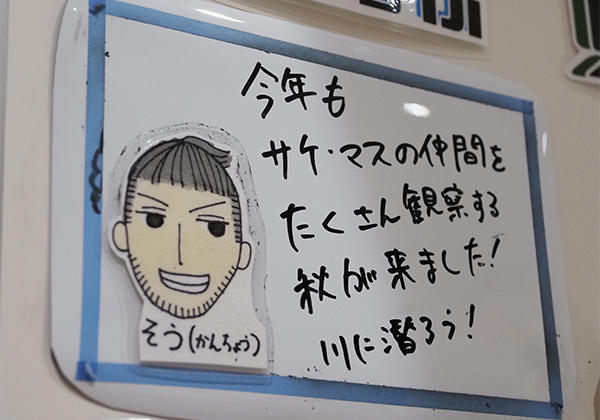 今年も
サケ・マスの仲間を
たくさん観察する
秋が来ました!
川に潜ろう!
そう(かんちょう)